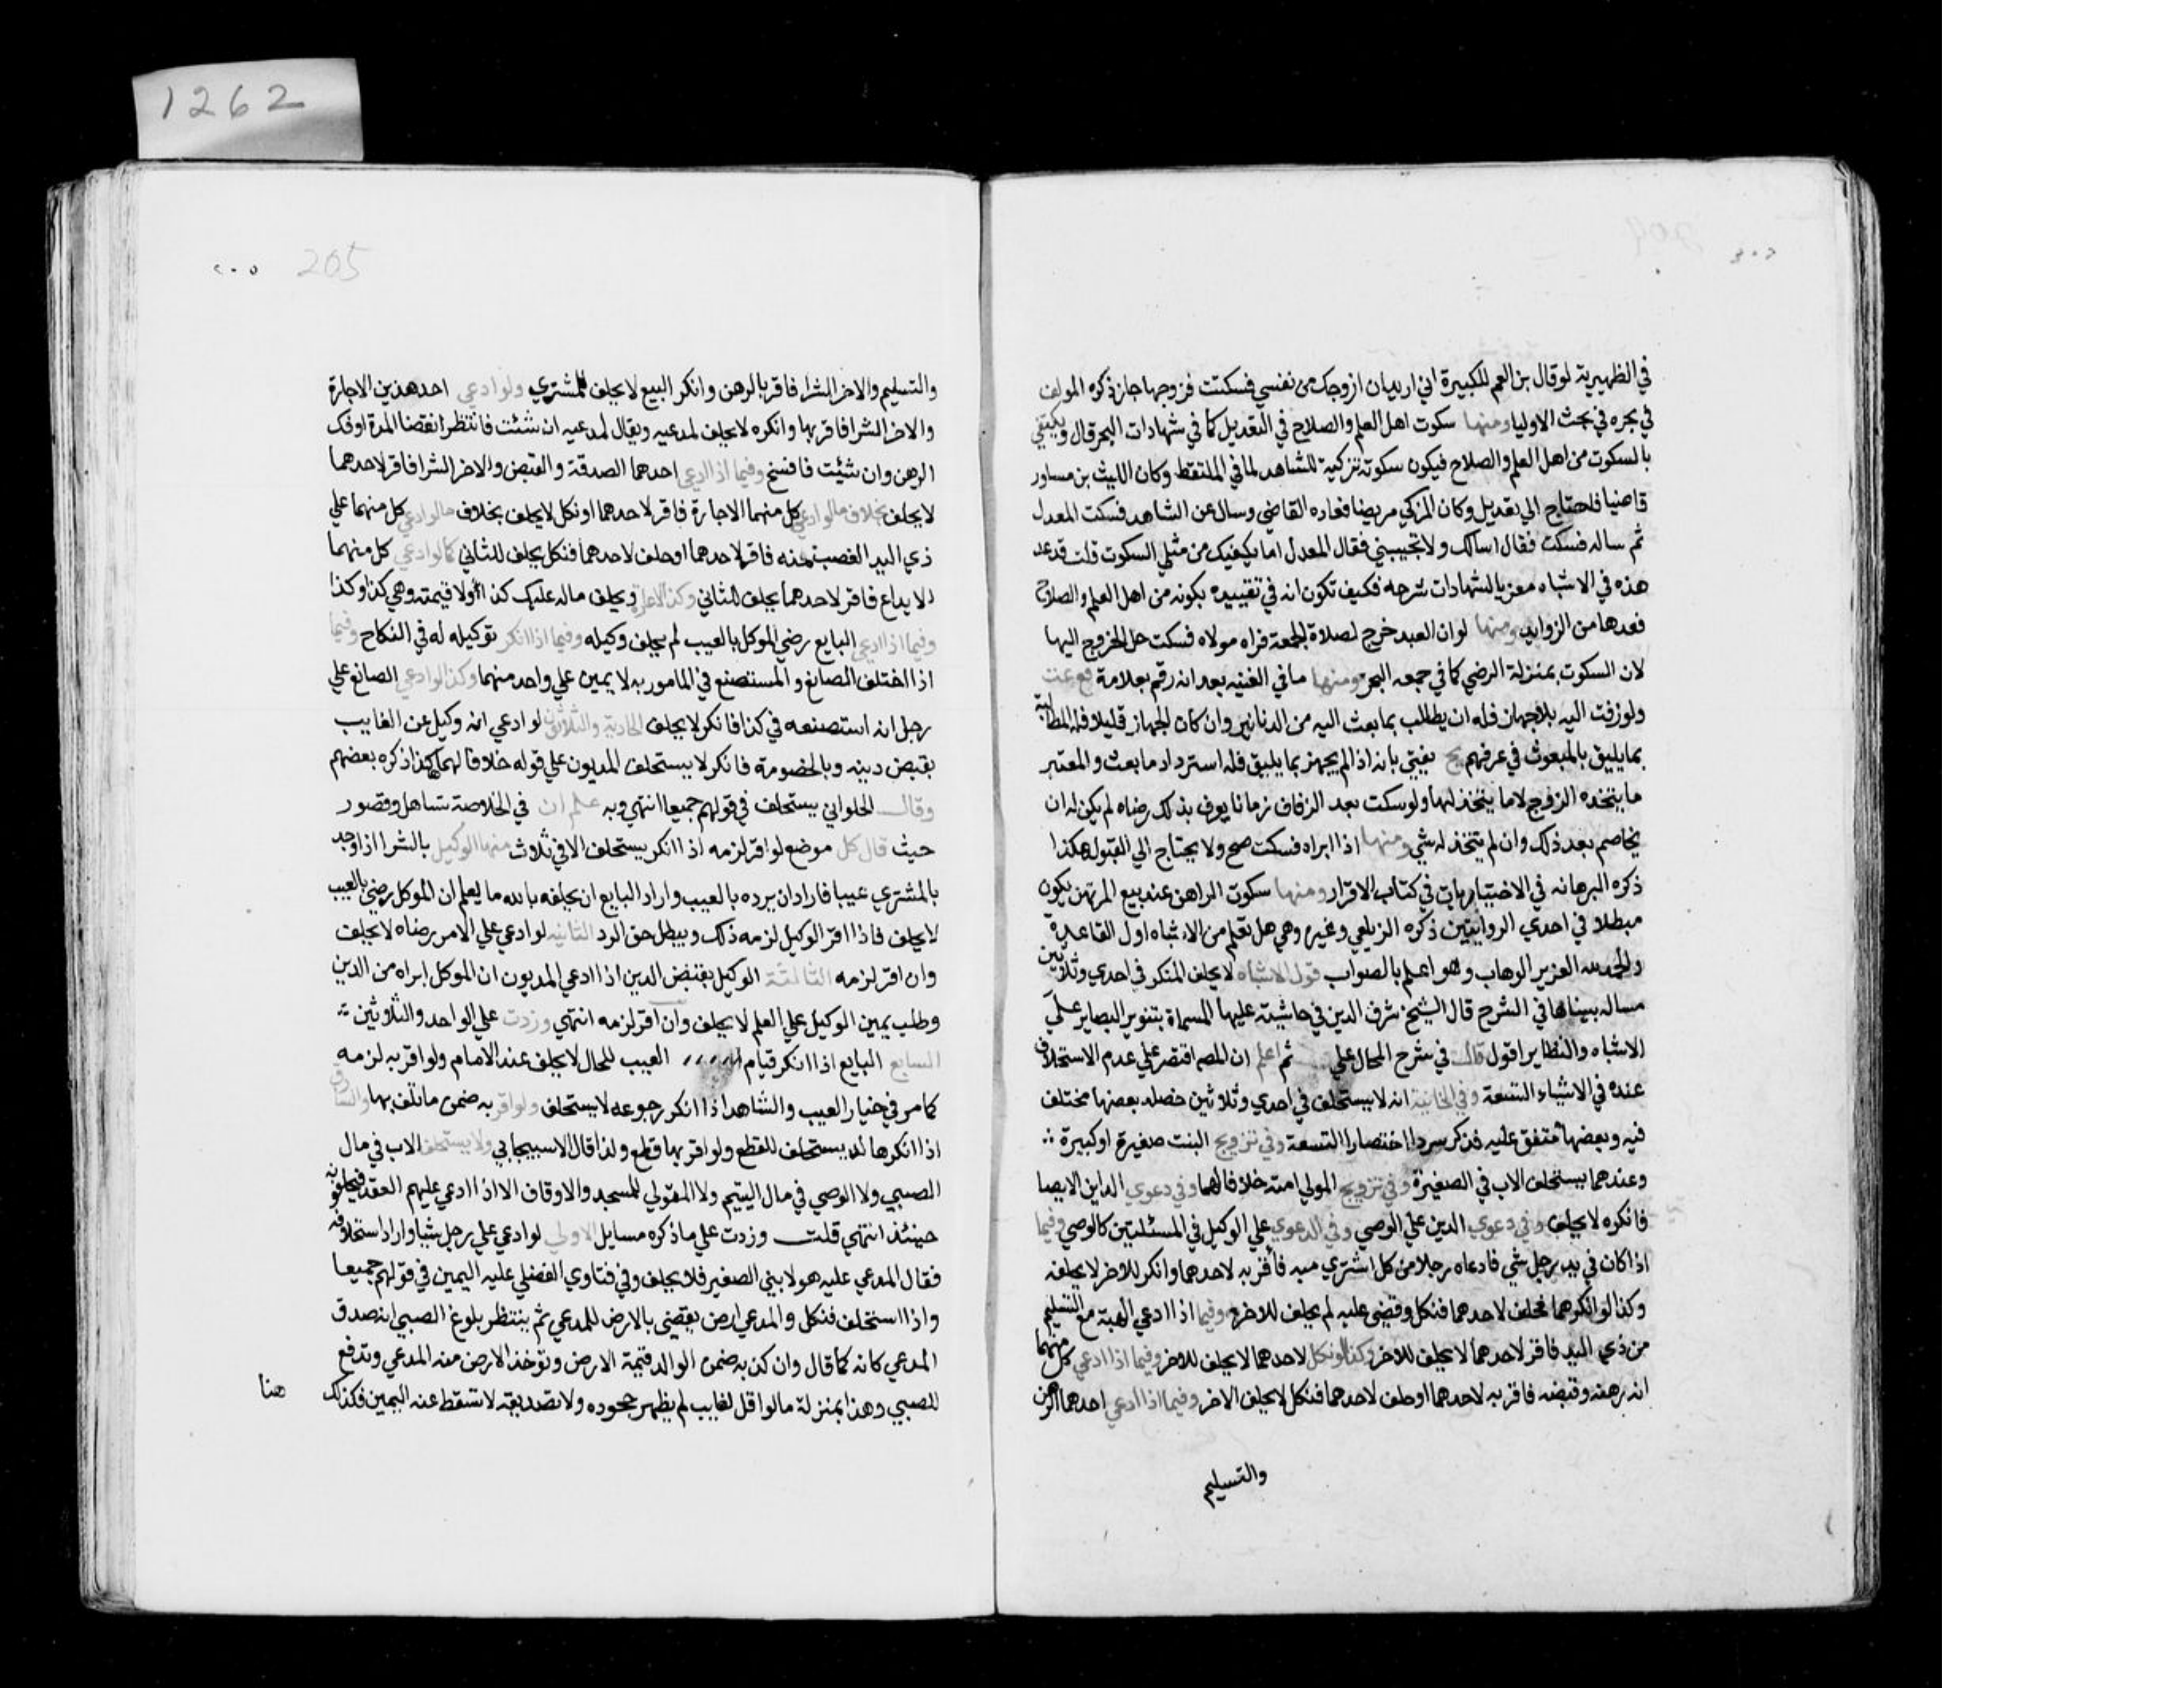 في الظهيرية لو قال بن العم للكبيرة اني اريد ان ازوجك من نفسي فسكتت فزوجها جاز ذكره المولف
في بحره في بحث الاوليا ومنها سكوت اهل العلم والصلاح في التعديل كما في شهادات البحر قال ويكتفي
بالسكوت من اهل العلم والصلاح فيكون سكوته تزكية للشاهد لما في الملتقط وكان الليث بن مساور
قاضيا فاحتاج الي تعديل وكان المزكي مريضا فعاده القاضي وسال عن الشاهد فسكت المعدل
ثم ساله فسكت فقال اسالك ولا تجيبني فقال المعدل اما يكفيك من مثلي السكوت قلت قد عد
هذه في الاشباه معزيا لشهادات شرحه فكيف تكون انه في تقييده بكونه من اهل العلم والصلاح
فعدها من الزوايد ومنها لو ان العبد خرج لصلاة الجمعة فراه مولاه فسكت حل الخروج اليها
لان السكوت بمنزلة الرضي كما في جمعه البحر ومنها ما في القنيه بعد انه رقم بعلامة قع عت
ولو زفت اليه بلا جهاز فله ان يطالب بما بعث اليه من الدنانير وان كان الجهاز قليلا فله المطالبة
بما يليق بالمبعوث في عرفهم نج يفتي بانه اذا لم يجهز بما يليق فله استرداد ما بعث والمعتبر
ما يتخذه الزوج لا ما يتخذ لها ولو سكت بعد الزفاف زمانا يعرف بذلك رضاه لم يكن له ان
يخاصم بعد ذلك وان لم يتخذ له شي ومنها اذا ابراه فسكت صح ولا يحتاج الي القبول هكذا
ذكره البرهانه في الاختيار يات في كتاب الاقرار ومنها سكوت الراهن عند بيع المرتهن يكون
مبطلا في احدي الروايتين ذكره الزيلعي وغيره وهي هل تعلم من الاشباه اول القاعدة
والحمد لله العزيز الوهاب وهو اعلم بالصواب قول الاشباه لا يحلف المنكر في احدي وثلاثين
مساله بيناها في الشرح قال الشيخ شرف الدين في حاشيته عليها المسماة بتنوير البصاير علي
الاشباه والنظاير اقول قالت في شرح المحال علي ثم اعلم ان المصه اقتصر علي عدم الاستحلاف
عنده في الاشياء التسعة وفي الخانية انه لا يستحلف في احدي وثلاثين خصله بعضها مختلف
فيه وبعضها متفق عليه فذكر سردا اختصارا التسعة وفي تزويج البنت صغيرة او كبيرة
وعندهما يستحلف الاب في الصغيرة وفي تزويج المولي امته خلافا لهما وفي دعوي الداين الايصا
فانكره لا يحلف وفي دعوي الدين علي الوصي وفي الدعوي علي الوكيل في المسئلتين كالوصي وفيما
اذا كان في يد رجل شي فادعاه رجلا من كل اشتري منه فاقر به لاحدهما وانكر للاخر لا يحلفه
وكذا لو انكرهما فحلف لاحدهما فنكل وقضي عليه لم يحلف للاخر وفيما اذا ادعي الهبة مع التسليم
من ذي اليد فاقر لاحدهما لا يحلف للاخر وكذا لو نكل لاحدهما لا يحلف للاخر وفيما اذا ادعي كل منهما
انه رهنه وقبضه فاقر به لاحدهما او حلف لاحدهما فنكل لا يحلف الاخر وفيما اذا ادعي احدهما الرهن
والتسليم
1262
205
٢٠٥
والتسليم والاخر الشرا فاقر بالرهن وانكر البيع لا يحلف للمشتري ولو ادعي احد هذين الاجارة
والاخر الشرا فاقر بها وانكره لا يحلف لمدعيه ويقال لمدعيه ان شئت فانتظر انقضا المدة او فك
الرهن وان شئت فافسخ وفيما اذا ادعي احدهما الصدقة والقبض والاخر الشرا فاقر لاحدهما
لا يحلف بخلاف ما لو ادعي كل منهما الاجارة فاقر لاحدهما او نكل لا يحلف بخلاف ما لو ادعي كل منهما علي
ذي اليد الغصب منه فاقر لاحدهما او حلف لاحدهما فنكل يحلف للثاني كما لو ادعي كل منهما
الايداع فاقر لاحدهما يحلف للثاني وكذا الاعارة ويحلف ماله عليك كذا ولا قيمته وهي كذا وكذا
وفيما اذا ادعي البايع رضي الموكل بالعيب لم يحلف وكيله وفيما اذا انكر توكيله له في النكاح وفيما
اذا اختلف الصانع والمستصنع في المامور به لا يمين علي واحد منهما وكذا لو ادعي الصانع علي
رجل انه استصنعه في كذا فانكر لا يحلف الحادية والثلاثون لو ادعي انه وكيل عن الغايب
بقبض دينه وبالخصومة فانكر لا يستحلف المديون علي قوله خلافا لهما هكذا ذكره بعضهم
وقال الحلواني يستحلف في قولهم جميعا انتهي وبه علم ان في الخلاصة تساهل وقصور
حيث قال كل موضع لو اقر لزمه اذا انكر يستحلف الا في ثلاث منها الوكيل بالشرا اذا وجد
بالمشتري عيبا فاراد ان يرده بالعيب واراد البايع ان يحلفه بالله ما يعلم ان الموكل رضي بالعيب
لا يحلف فاذا اقر الوكيل لزمه ذلك ويبطل حق الرد الثانيه لو ادعي علي الامر رضاه لا يحلف
وان اقر لزمه الثالثة الوكيل بقبض الدين اذا ادعي المديون ان الموكل ابراه من الدين
وطلب يمين الوكيل علي العلم لا يحلف وان اقر لزمه انتهي وزدت علي الواحد والثلاثين
السابع البايع اذا انكر قيام العيب للحال لا يحلف عند الامام ولو اقر به لزمه
كما مر في خيار العيب والشاهد اذا انكر رجوعه لا يستحلف ولو اقر به ضمن ما تلف بها والسارق
اذا انكرها لا يستحلف للقطع ولو اقر بها قطع ولذا قال الاسبيجابي ولا يستحلف الاب في مال
الصبي ولا الوصي في مال اليتيم ولا المتولي للمسجد والاوقاف الا اذا ادعي عليهم العقد فيحلفونه
حينئذ انتهي قلت وزدت علي ما ذكره مسايل الاولي لو ادعي علي رجل شيا واراد استحلافه
فقال المدعي عليه هو لابني الصغير فلا يحلف وفي فتاوي الفضلي عليه اليمين في قولهم جميعا
واذا استحلف فنكل والمدعي ارض يقضي بالارض للمدعي ثم ينتظر بلوغ الصبي ان صدق
المدعي كانه كما قال وان كذبه ضمن الوالد قيمة الارض وتوخذ الارض منه المدعي وتدفع
للصبي وهذا بمنزلة ما لو اقل لغايب لم يظهر جحوده ولا تصديقه لا تسقط عنه اليمين فكذلك
هنا